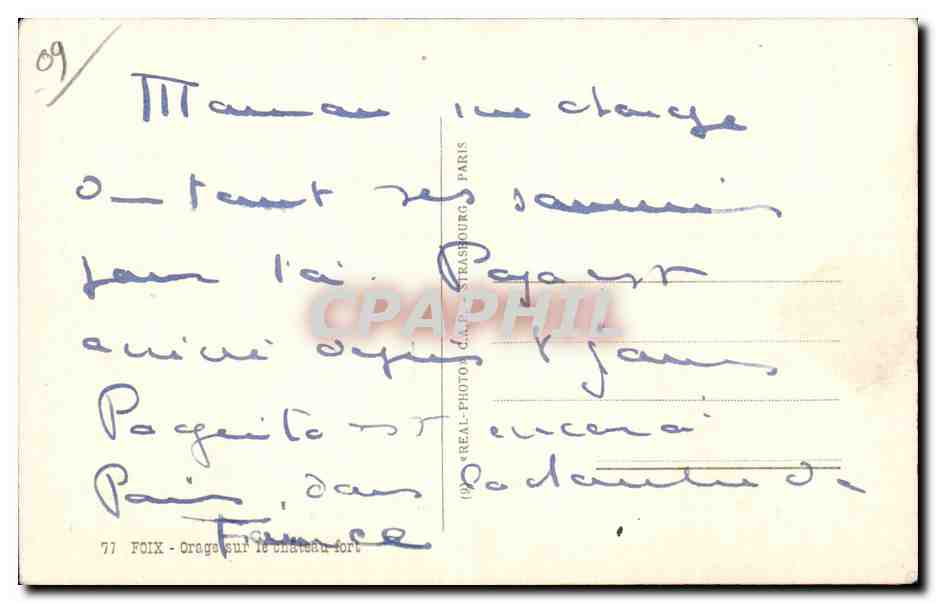 09
Maman me charge
tant ses
pour
Papa est
arrivé depuis 8 jours
Paquita est encore à
Paris, dans la chambre de
France
77 FOIX - Orage sur le château fort
(9) «REAL-PHOTO» C.A.P. - STRASBOURG - PARIS
CPAPHIL